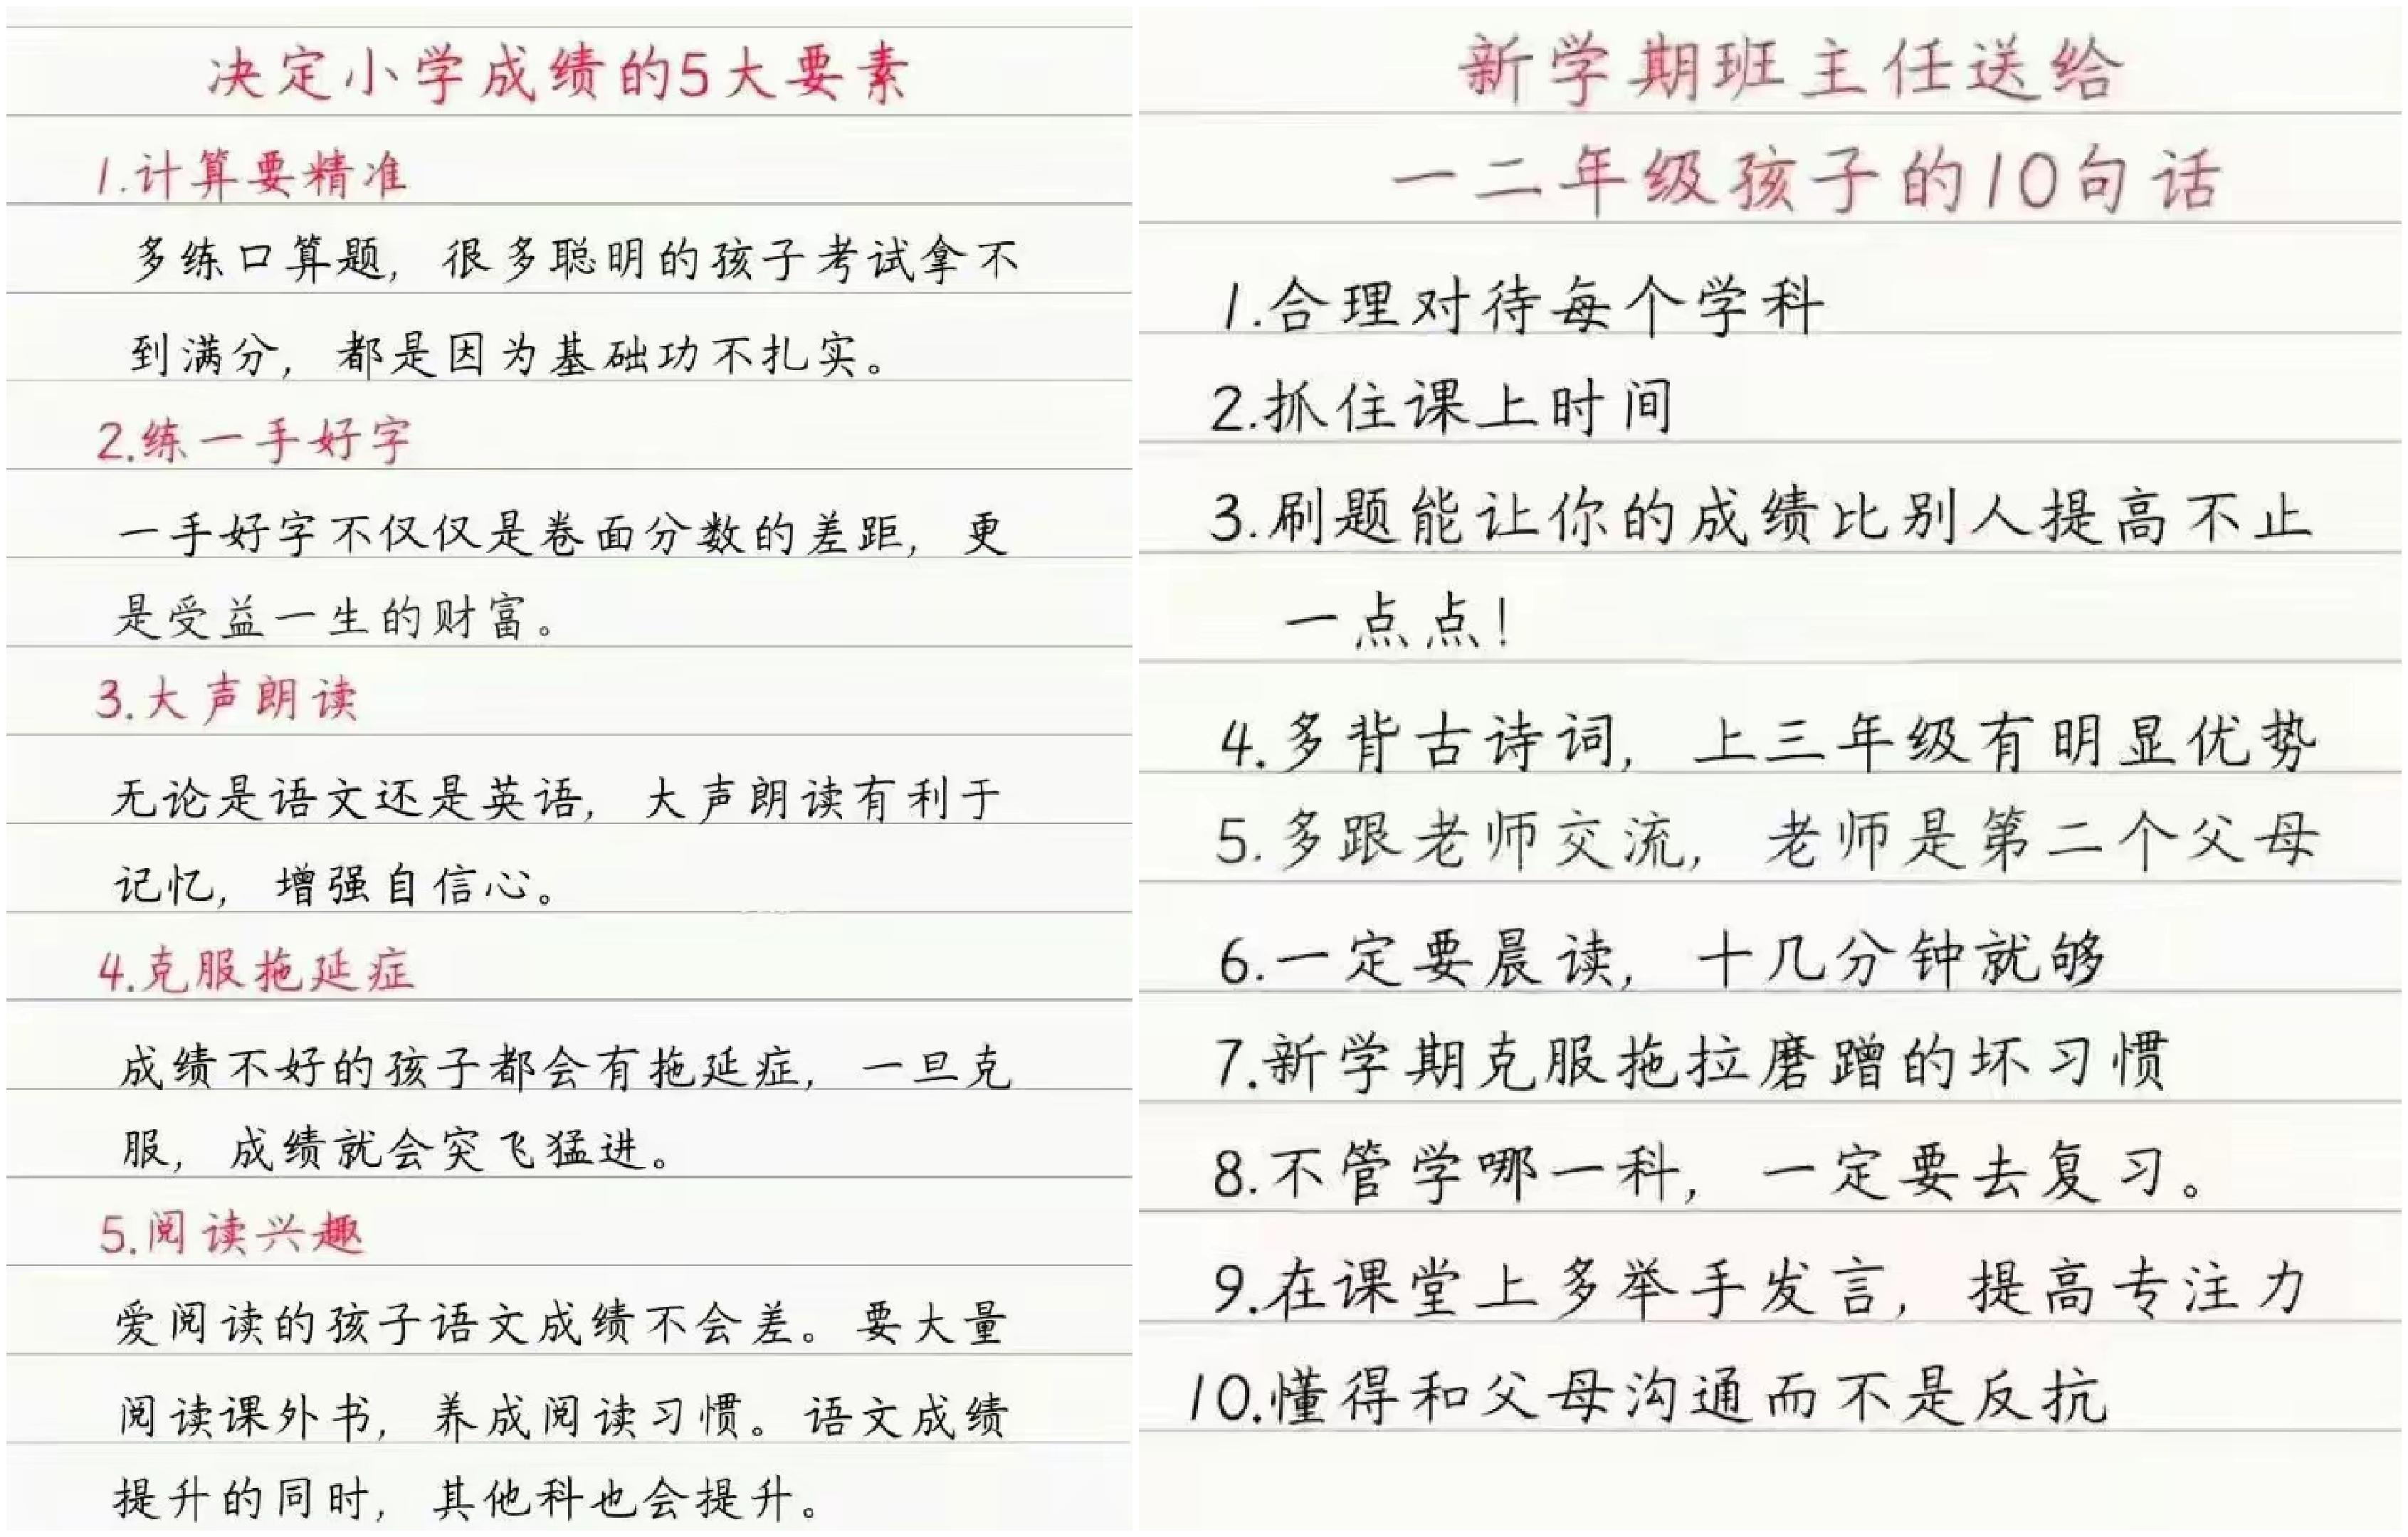 决定小学成绩的5大要素
1.计算要精准
多练口算题，很多聪明的孩子考试拿不
到满分，都是因为基础功不扎实。
2.练一手好字
一手好字不仅仅是卷面分数的差距，更
是受益一生的财富。
3.大声朗读
无论是语文还是英语，大声朗读有利于
记忆，增强自信心。
4.克服拖延症
成绩不好的孩子都会有拖延症，一旦克
服，成绩就会突飞猛进。
5.阅读兴趣
爱阅读的孩子语文成绩不会差。要大量
阅读课外书，养成阅读习惯。语文成绩
提升的同时，其他科也会提升。
新学期班主任送给
一二年级孩子的10句话
1.合理对待每个学科
2.抓住课上时间
3.刷题能让你的成绩比别人提高不止
一点点!
4.多背古诗词，上三年级有明显优势
5.多跟老师交流，老师是第二个父母
6.一定要晨读，十几分钟就够
7.新学期克服拖拉磨蹭的坏习惯
8.不管学哪一科，一定要去复习。
9.在课堂上多举手发言，提高专注力
10.懂得和父母沟通而不是反抗